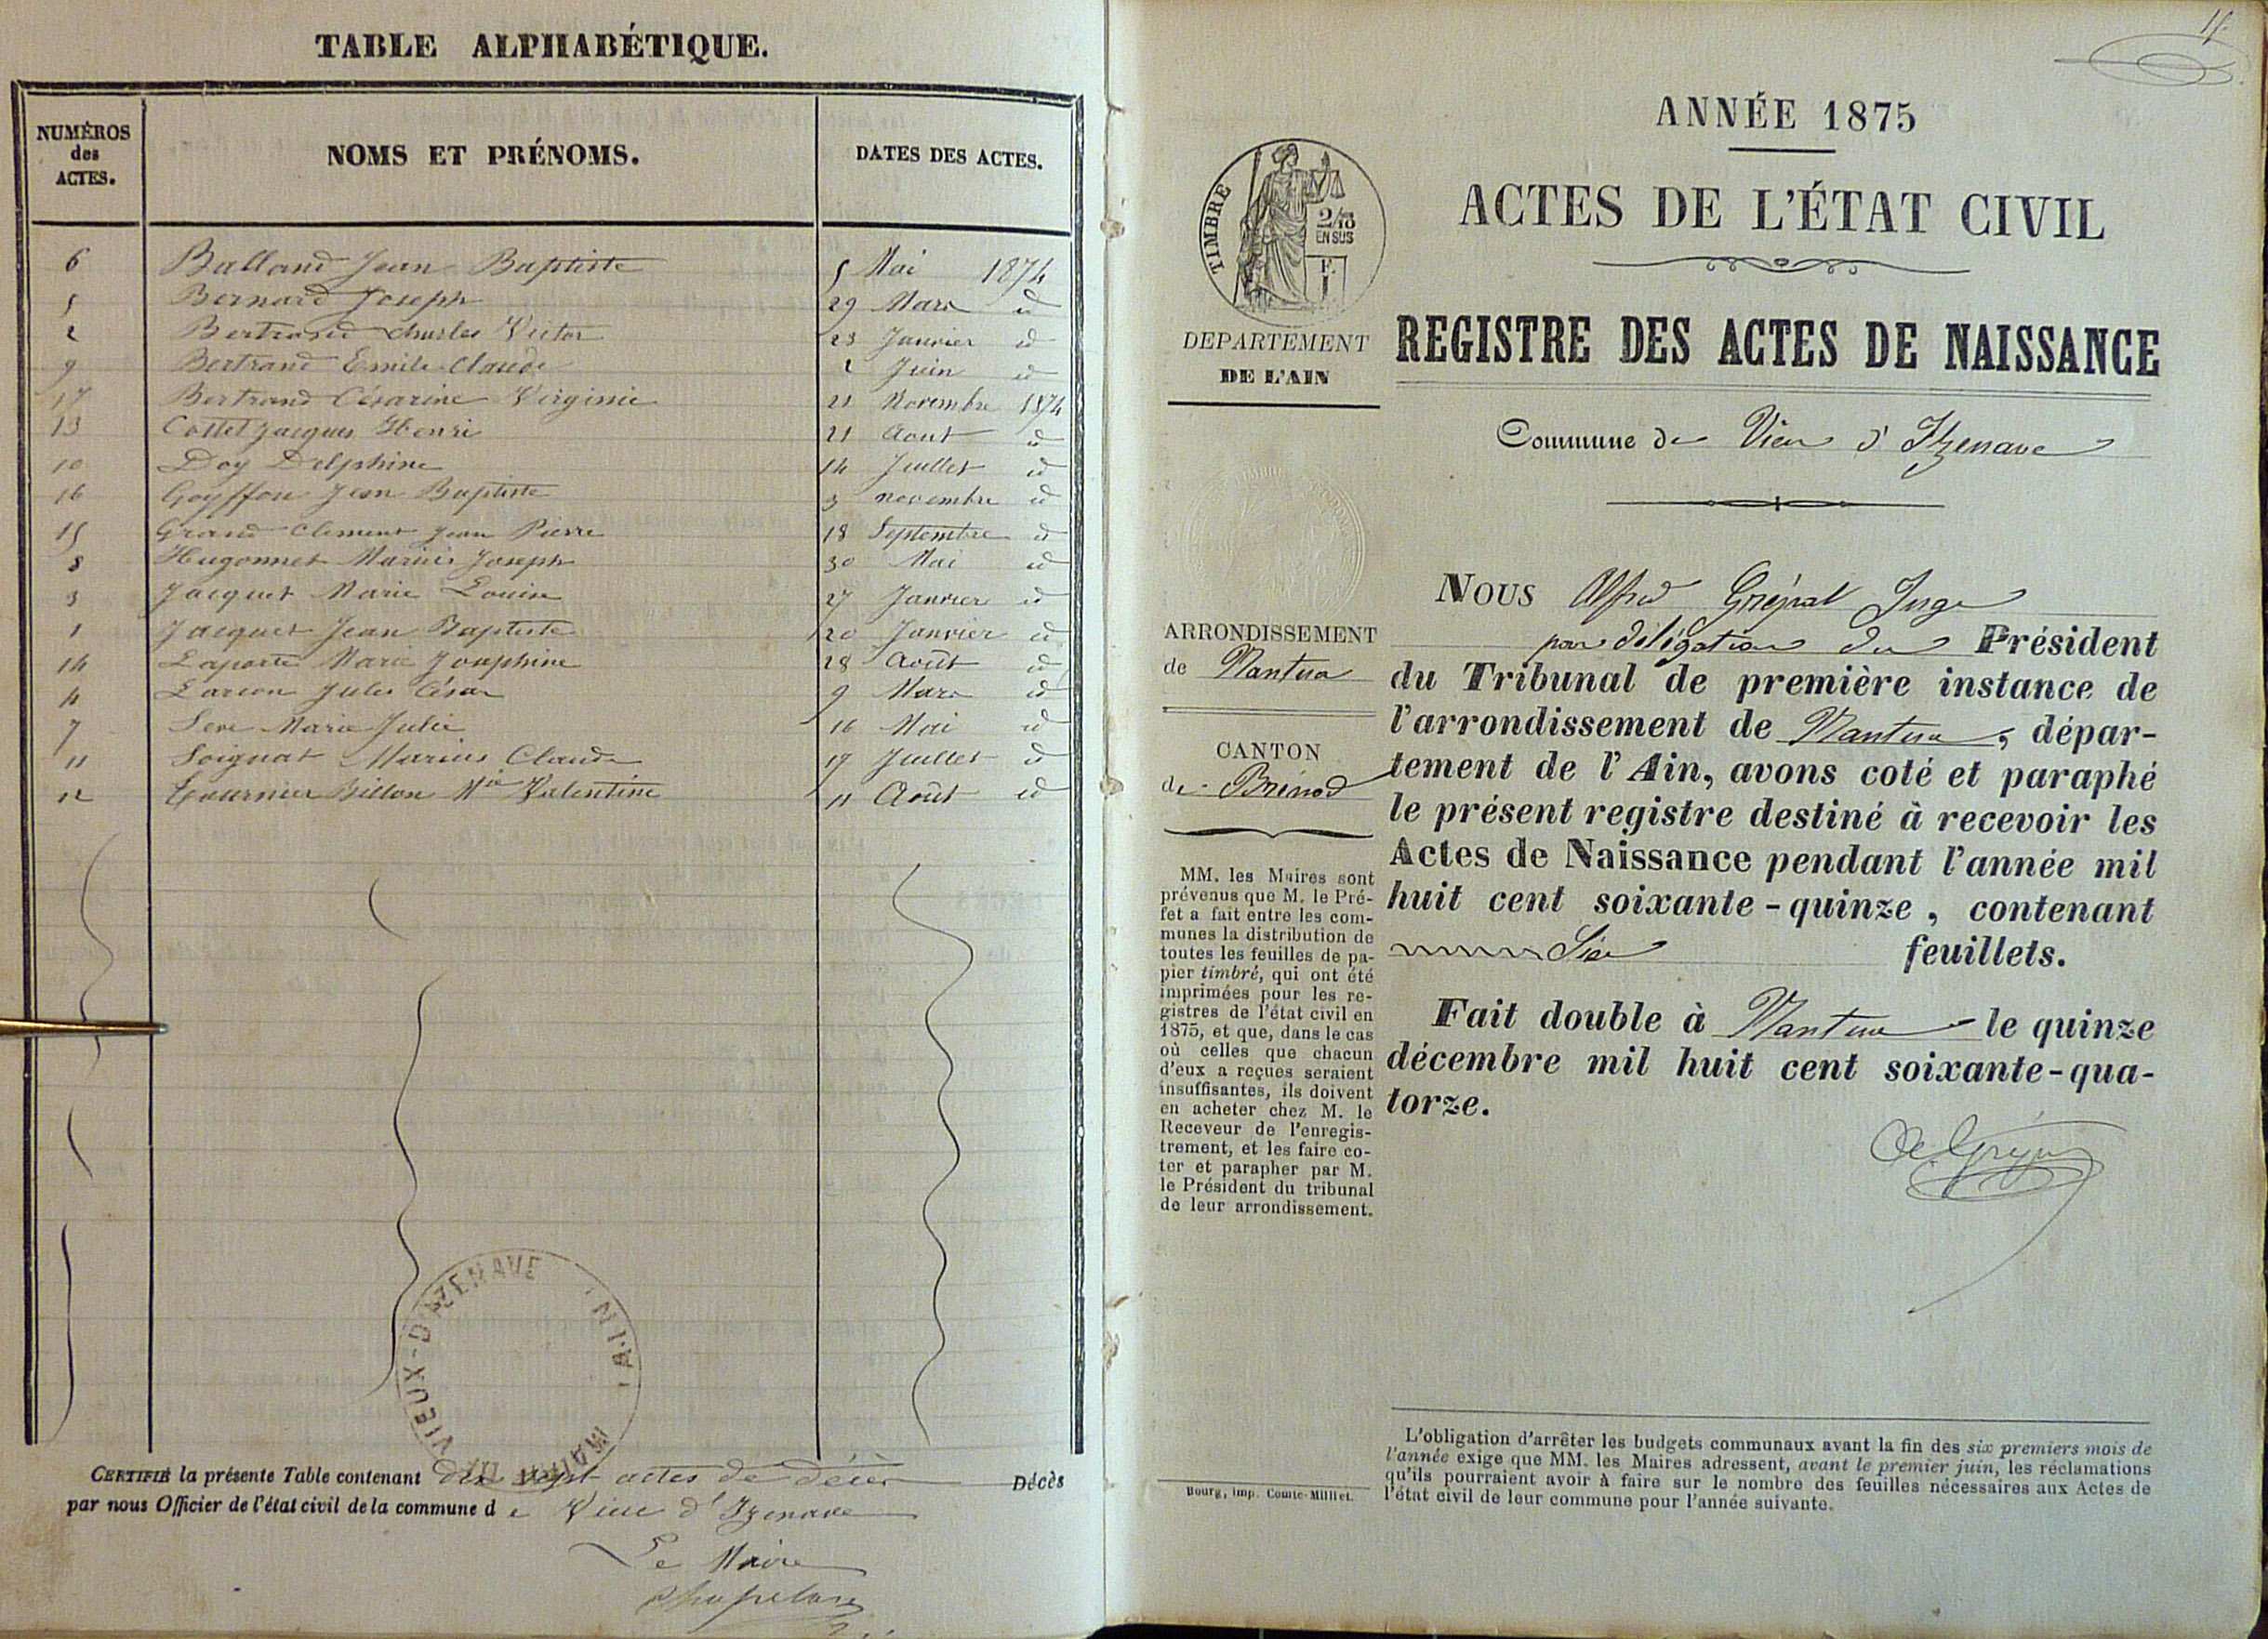 TABLE ALPHABÉTIQUE.
NUMÉROS des ACTES. NOMS ET PRÉNOMS. DATES DES ACTES.
6 Balland Jean Baptiste 5 Mai 1874
5 Bernard Joseph 29 Mars id
2 Bertrand Charles Victor 23 Janvier id
9 Bertrand Emile Claude 2 Juin id
17 Bertrand Césarine Virginie 21 Novembre 1874
13 Costet Jacques Henri 21 Aout id
10 Doy Delphine 14 Juillet id
16 Goyffon Jean Baptiste 3 novembre id
15 Grand Clement Jean Pierre 18 Septembre id
8 Hugonnet Marius Joseph 30 Mai id
3 Jacquet Marie Louise 27 Janvier id
1 Jacquet Jean Baptiste 20 Janvier id
14 Laporte Marie Josephine 28 Août id
4 Jules César 9 Mars id
7 Seve Marie Julie 16 Mai id
11 Soignat Marius Claude 17 Juillet id
12 Tournier Billon Mie Valentine 11 Août id
MAIRIE DE VIEUX-D'IZENAVE (AIN)
CERTIFIÉ la présente Table contenant dix sept actes de décès Décès
par nous Officier de l'état civil de la commune d e Vieu d'Izenave
Le Maire
ANNÉE 1875
ACTES DE L'ÉTAT CIVIL
TIMBRE
2/10
EN SUS
F.
1
DEPARTEMENT
DE L'AIN
REGISTRE DES ACTES DE NAISSANCE
Commune de Vieu d'Izenave
ARRONDISSEMENT
de Nantua
CANTON
de Brénod
MM. les Maires sont
prévenus que M. le Pré-
fet a fait entre les com-
munes la distribution de
toutes les feuilles de pa-
pier timbré, qui ont été
imprimées pour les re-
gistres de l'état civil en
1875, et que, dans le cas
où celles que chacun
d'eux a reçues seraient
insuffisantes, ils doivent
en acheter chez M. le
Receveur de l'enregis-
trement, et les faire co-
ter et parapher par M.
le Président du tribunal
de leur arrondissement.
Bourg, imp. Comte-Milliet.
NOUS Alfred Juge
par délégation du Président
du Tribunal de première instance de
l'arrondissement de Nantua, dépar-
tement de l'Ain, avons coté et paraphé
le présent registre destiné à recevoir les
Actes de Naissance pendant l'année mil
huit cent soixante-quinze, contenant
Six feuillets.
Fait double à Nantua le quinze
décembre mil huit cent soixante-qua-
torze.
L'obligation d'arrêter les budgets communaux avant la fin des six premiers mois de
l'année exige que MM. les Maires adressent, avant le premier juin, les réclamations
qu'ils pourraient avoir à faire sur le nombre des feuilles nécessaires aux Actes de
l'état civil de leur commune pour l'année suivante.